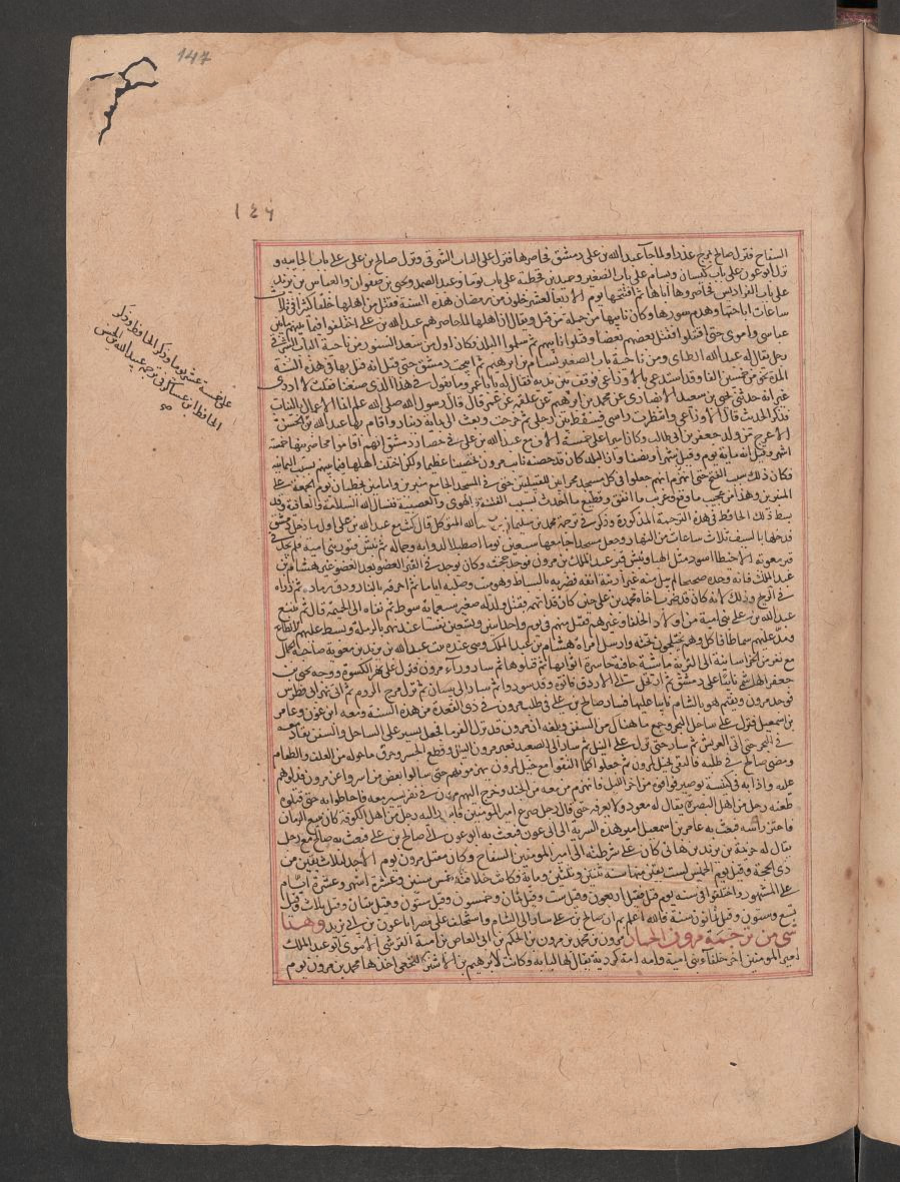 147
١٤٦
السفاح فنزل صالح بمرج عذراء ولما جاء عبد الله بن علي دمشق فحاصرها فنزل على الباب الشرقي ونزل صالح بن علي على باب الجابيه و
نزل ابو عون على باب كيسان وبسام على باب الصغير وحميد بن قحطبه على باب توما وعبد الصمد ويحيى بن صفوان والعباس بن يزيد
على باب الفراديس فحاصروها أياما ثم افتتحها يوم الاربعا لعشر خلون من رمضان هذه السنة فقتل من اهلها خلقا كثيرا في ثلاث
ساعات اباحها وهدم سورها ويقال ان اهلها لما حاصرهم عبد الله بن علي اختلفوا فيما بينهم ما بين
عباسي واموي حتى اقتتلوا فقتل بعضهم بعضا وقتلوا نايبهم ثم سلموا البلد فكان اول من صعد السور من ناحية الباب الشرقي
رجل يقال له عبد الله الطاي ومن ناحية باب الصغير بسام بن ابرهيم ثم ابيحت دمشق حتى قتل انه قتل بها في هذه السنة
المدة نحو من خمسين الفا
فذكر الحديث قال الاوزاعي وانتظرت راسي فيسقط بين رجلي ثم خرجت وبعث الي بماية دينار
الاعرج من ولد جعفر بن ابي طالب وكان اميرا على خمسة الاف مع عبد الله بن علي في حصار دمشق انهم اقاموا محاصريها خمسة
اشهر وقيل انه ماية يوم وقيل شهرا ونصفا وان البلد كان قد حصنه نايب مرون تحصينا عظيما ولكن اختلف اهلها فيما بينهم بسبب اليمانية
فكان ذلك سبب الفتح حتى انهم جعلوا في كل مسجد محرابين للقبلتين حتى في المسجد الجامع منبرين وامامين يخطبان يوم الجمعة على
المنبرين وهذا من عجيب ما وقع وغريب ما اتفق وفظيع ما احدث بسبب الفتنة والهوى والعصبية فنسال الله السلامة والعافية وقد
بسط ذلك الحافظ في هذه الترجمة المذكورة وذكر في ترجمة محمد بن سليمان بن عبد الله النوفلي قال كنت مع عبد الله بن علي اول ما دخل دمشق
فدخلها بالسيف ثلاث ساعات من النهار وجعل مسجد جامعها سبعين يوما اصطبلا لدوابه وجماله ثم نبش قبور بني امية فلم يجد في
قبر معوية الا خيطا اسود مثل الهبا ونبش قبر عبد الملك بن مرون فوجد جمجمة وكان يوجد في القبر العضو بعد العضو غير هشام بن
عبد الملك فانه وجده صحيحا لم يبل منه غير ارنبة انفه فضربه بالسياط وهو ميت وصلبه اياما ثم احرقه بالنار ودق رماده ثم ذراه
في الريح وذلك لانه كان قد ضرب اخاه محمد بن علي حين كان قد اتهم بقتل ولد له صغير سبعماية سوط ثم نفاه الى الحميمة قال ثم تتبع
عبد الله بن علي بني امية من اولاد الخلفا وغيرهم فقتل منهم في يوم واحد اثنين وتسعين نفسا عند نهر بالرملة وبسط عليهم الانطاع
ومد عليهم سماطا فاكل وهم يختلجون تحته وارسل امراة هشام بن عبد الملك وهي عبدة بنت عبد الله بن يزيد بن معوية صاحبة الخال
مع نفر من الخراسانية الى البرية ماشية حافية حاسرة
جعفر الهاشمي نايبا على دمشق ثم ارتحل
فوجد مرون
بن اسمعيل فنزل على ساحل البحر وجمع ما هنالك من السفن وبلغه ان مرون قد نزل الفرما فجعل يسير على الساحل والسفن تقاد معه
في البحر حتى اتى العريش ثم سار حتى نزل على النيل ثم سار الى الصعيد فعبر مرون النيل وقطع الجسر وحرق ما حوله من العلف والطعام
ومضى صالح في طلبه فالتقى بخيل لمرون ثم جعلوا كلما التقوا مع خيل لمرون يهزمونهم حتى سالوا بعض من اسروا عن مرون فدلوهم
عليه واذا به في كنيسة بوصير فوافوه من اخر الليل فانهزم من معه من الجند وخرج اليهم مرون في نفر يسير معه فاحاطوا به حتى قتلوه
طعنه رجل من اهل البصرة يقال له معود ولا يعرفه حتى قال رجل صرع امير المومنين فابتدر اليه رجل من اهل الكوفة كان يبيع الرمان
فاحتز راسه فبعث به عامر بن اسمعيل امير هذه السرية الى ابي عون فبعث به ابو عون الى صالح بن علي فبعث به صالح مع رجل
يقال له خزيمة بن يزيد بن هاني كان على شرطته الى امير المومنين السفاح وكان مقتل مرون يوم الاحد لثلاث بقين من
ذي الحجة وقيل يوم الخميس لست بقين منها سنة ثنتين وثلثين وماية فكانت خلافته خمس سنين وعشرة اشهر وعشرة ايام
على المشهور واختلفوا في سنه يوم قتل فقيل اربعون وقيل ست وقيل ثمان وخمسون وقيل ستون وقيل ثنتان وقيل ثلاث وقيل
تسع وستون وقيل ثمانون سنة فالله اعلم ثم ان صالح بن علي سار الى الشام واستخلف على مصر ابا عون بن ابي يزيد وهذا
شي من ترجمة مرون الحمار مرون بن محمد بن مرون بن الحكم بن ابي العاص بن امية القرشي الاموي ابو عبد الملك
امير المومنين اخر خلفاء بني امية وامه امة كردية يقال لها لبابه وكانت لابرهيم بن الاشتر النخعي اخذها محمد بن مرون يوم
على خمسة عشر يوما وذكر الحافظ وذكر
الحافظ ابن عساكر في ترجمة عبيد الله بن الحسن